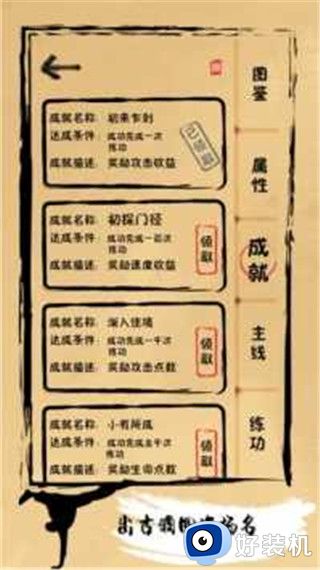 图鉴
属性
成就
主线
练功
成就名称: 初来乍到
达成条件: 成功完成一次
练功
成就描述: 奖励攻击收益
已领取
成就名称: 初探门径
达成条件: 成功完成一百次
练功
成就描述: 奖励速度收益
领取
成就名称: 渐入佳境
达成条件: 成功完成一千次
练功
成就描述: 奖励攻击点数
领取
成就名称: 小有所成
达成条件: 成功完成五千次
练功
成就描述: 奖励生命点数
领取
好装机